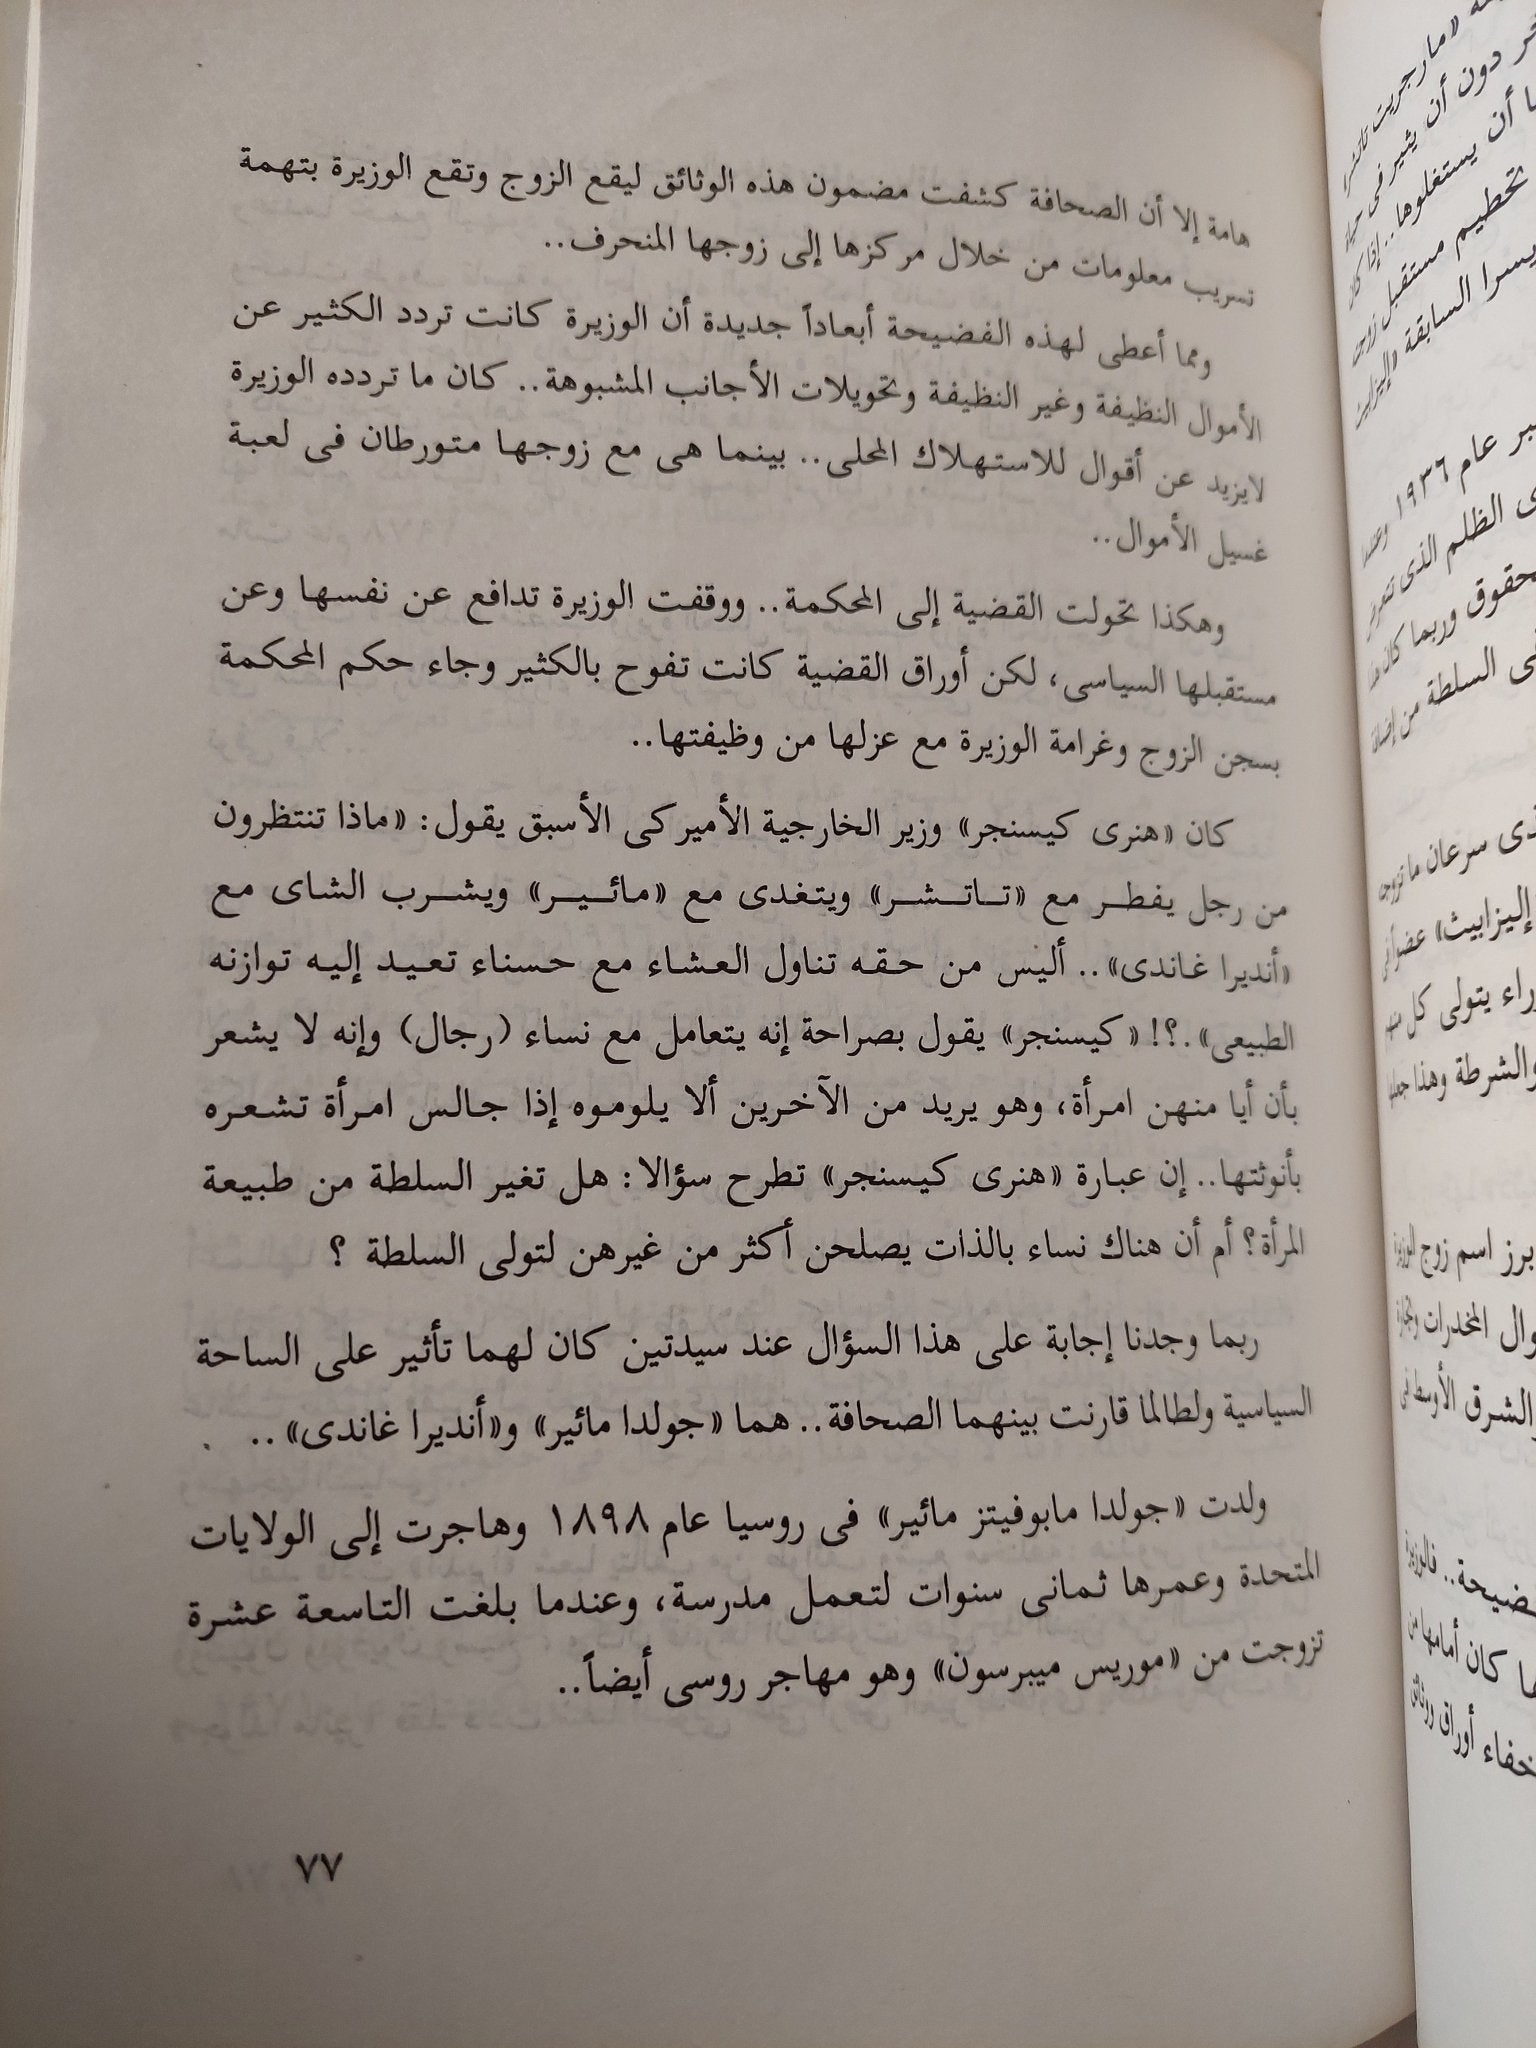 هامة إلا أن الصحافة كشفت مضمون هذه الوثائق ليقع الزوج وتقع الوزيرة بتهمة
تسريب معلومات من خلال مركزها إلى زوجها المنحرف..
ومما أعطى لهذه الفضيحة أبعاداً جديدة أن الوزيرة كانت تردد الكثير عن
الأموال النظيفة وغير النظيفة وتحويلات الأجانب المشبوهة.. كان ما تردده الوزيرة
لايزيد عن أقوال للاستهلاك المحلى.. بينما هى مع زوجها متورطان فى لعبة
غسيل الأموال..
وهكذا تحولت القضية إلى المحكمة.. ووقفت الوزيرة تدافع عن نفسها وعن
مستقبلها السياسى، لكن أوراق القضية كانت تفوح بالكثير وجاء حكم المحكمة
بسجن الزوج وغرامة الوزيرة مع عزلها من وظيفتها..
كان «هنرى كيسنجر» وزير الخارجية الأميركى الأسبق يقول: «ماذا تنتظرون
من رجل يفطر مع «تاتشر» ويتغدى مع «مائير» ويشرب الشاى مع
«أنديرا غاندى».. أليس من حقه تناول العشاء مع حسناء تعيد إليه توازنه
الطبيعى».؟! «كيسنجر» يقول بصراحة إنه يتعامل مع نساء (رجال) وإنه لا يشعر
بأن أيا منهن امرأة، وهو يريد من الآخرين ألا يلوموه إذا جالس امرأة تشعره
بأنوثتها.. إن عبارة «هنرى كيسنجر» تطرح سؤالا: هل تغير السلطة من طبيعة
المرأة؟ أم أن هناك نساء بالذات يصلحن أكثر من غيرهن لتولى السلطة ؟
ربما وجدنا إجابة على هذا السؤال عند سيدتين كان لهما تأثير على الساحة
السياسية ولطالما قارنت بينهما الصحافة.. هما «جولدا مائير» و«أنديرا غاندى»..
ولدت «جولدا مابوفيتز مائير» فى روسيا عام ١٨٩٨ وهاجرت إلى الولايات
المتحدة وعمرها ثمانى سنوات لتعمل مدرسة، وعندما بلغت التاسعة عشرة
تزوجت من «موريس ميبرسون» وهو مهاجر روسى أيضاً..
٧٧
«مارجريت
دون أن يثير فى
أن يستغلوها.. إذا
تحطيم مستقبل
السابقة
عام ١٩٣٦ وعندما
الظلم الذى
وربما كان
السلطة من
سرعان ما تزوجه
إليزابيث» عضوا
يتولى كل
والشرطة وهذا
برز اسم زوج
المخدرات
والشرق الأوسط
كان أمامها من
أوراق